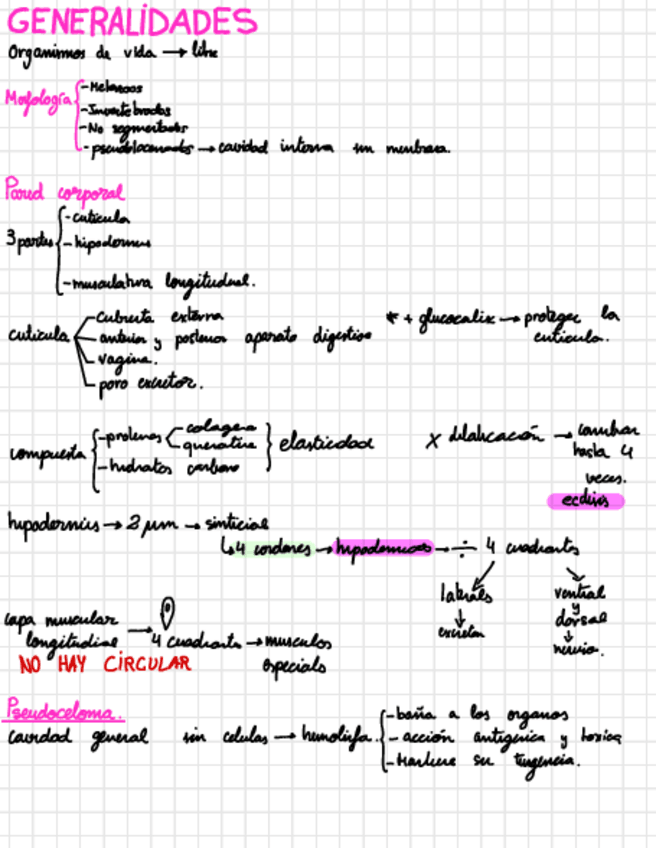 GENERALIDADES
Organismos de vida → libre
Morfología
- Metazoos
- Invertebrados
- No segmentados
- pseudocelomados → cavidad interna sin membrana.
Pared corporal
3 partes
- cuticula
- hipodermis
- musculatura longitudinal.
cuticula
cubierta externa
anterior y posterior aparato digestivo
vagina.
poro excretor.
* + glucocalix → protege la
cuticula.
compuesta
- proteinas
colageno
queratina
- hidratos carbono
elasticidad
x dilatación → cambiar
hasta 4
veces.
ecdisis
hipodermis → 2 µm → sinticial
↳ 4 cordones → hipodermicos → ÷ 4 cuadrantes
laterales
↓
excretor
ventral
y
dorsal
↓
nervio.
capa muscular
longitudinal → 4 cuadrantes → musculos
especials
NO HAY CIRCULAR
Pseudoceloma.
cavidad general sin celulas → hemolinfa.
- baña a los organos
- acción antigénica y toxica
- Mantiene su turgencia.